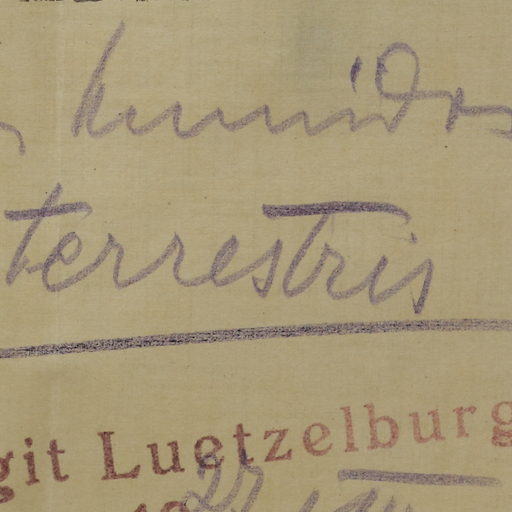 humidos
terrestris
git Luetzelburg